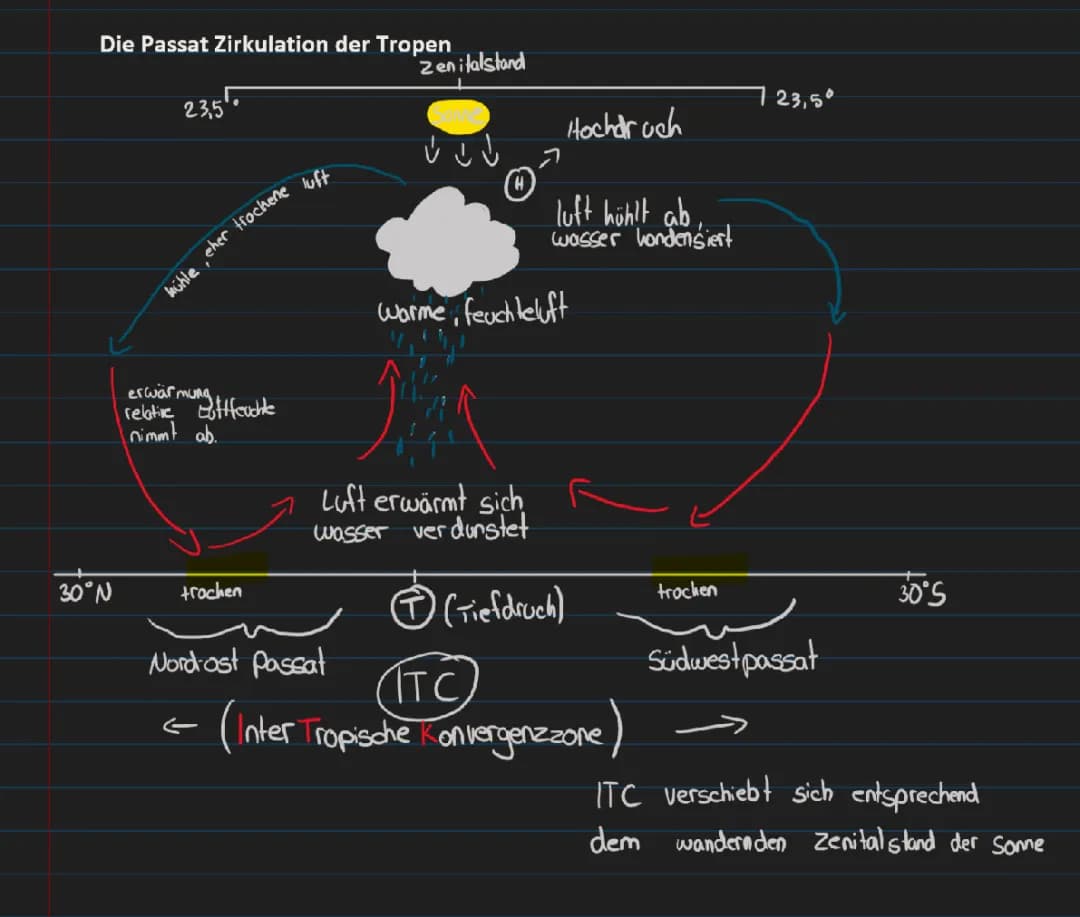 Die Passat Zirkulation der Tropen
Zenitalstand
23,5°
23,5°
Sonne
Hochdruch
H
kühle, eher trochene luft
luft hühlt ab,
wasser kondensiert
warme, feuchteluft
erwärmung
relative Luftfeuchte
nimmt ab.
Luft erwärmt sich
wasser verdunstet
30°N
trochen
T (Tiefdruch)
trochen
30°S
Nord-ost Passat
Südwestpassat
ITC
← (Inter Tropische Konvergenzzone) →
ITC verschiebt sich entsprechend
dem wandernden Zenitalstand der Sonne